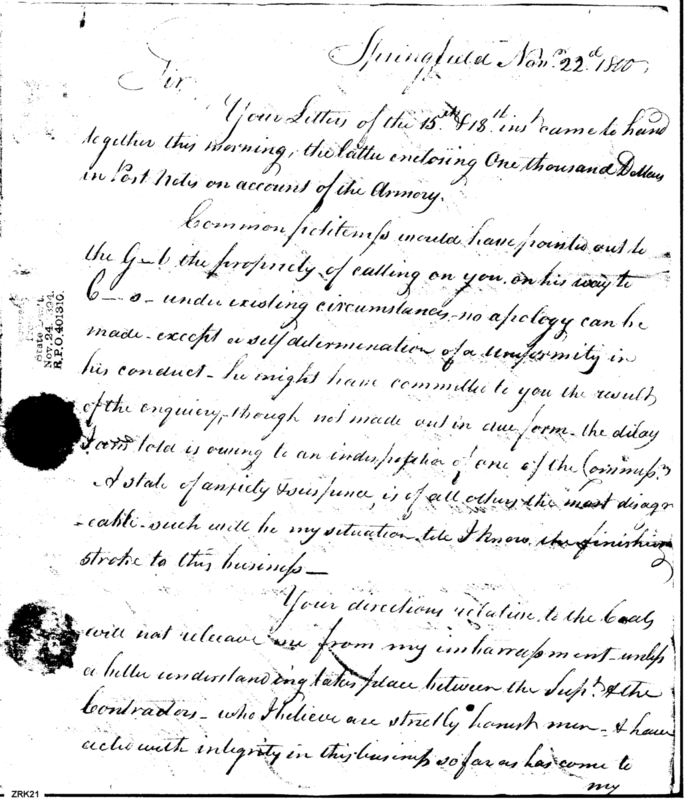 Springfield Nov.r 22.d 1800
Sir
Your Letters of the 15th & 18th inst came to hand
together this morning, the latter enclosing One thousand Dollars
in Post Notes on account of the Armory.
Common politeness would have pointed out to
the G—l the propriety of calling on you on his way to
C— s— under existing circumstances no apology can be
made - except a self determination of a uniformity in
his conduct - he might have committed to you the result
of the enquiery, though not made out in due form - the dilay
I am told is owing to an indisposition of one of the Commiss.rs
A state of anxiety & suspence, is of all others the most disagr
-eable - such will be my situation till I know the finishing
stroke to this business —
Your directions relative to the Coals
will not releave me from my embarrassment - unless
a better understanding takes place between the Supt. & the
Contractors - who I believe are strictly honest men - & have
acted with integrity in this business so far as has come to
my
State Dept.
Nov. 24, 1894.
R.P.O. 401310.
ZRK21